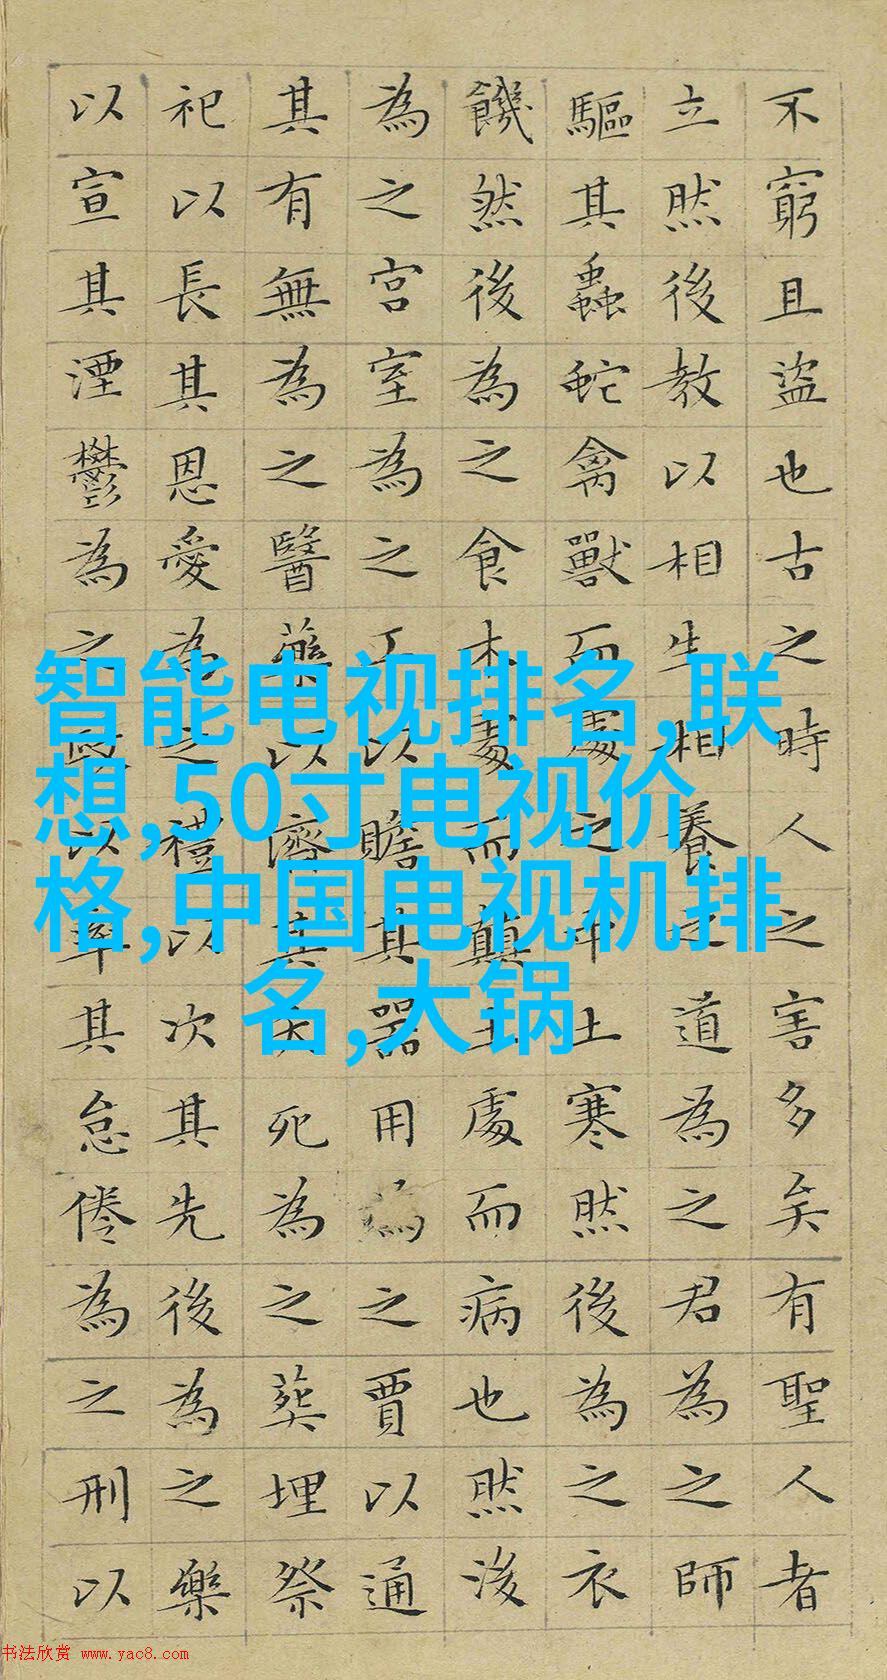 不窮且盜也古之時人之害多矣有聖人者
立然後教以相生相養之道為之君為之師
驅其蟲蛇禽獸而處之中土寒然後為之衣
饑然後為之食木處而顛土處而病也然後
為之宮室為之工以贍其器用為之賈以通
其有無為之醫藥以濟其夭死為之葬埋祭
祀以長其恩愛為之禮以次其先後為之樂
以宣其湮鬱為之政以率其怠倦為之刑以
智能电视排名,联
想,50寸电视价
格,中国电视机排
名,大锅
书法欣赏 www.yac8.com